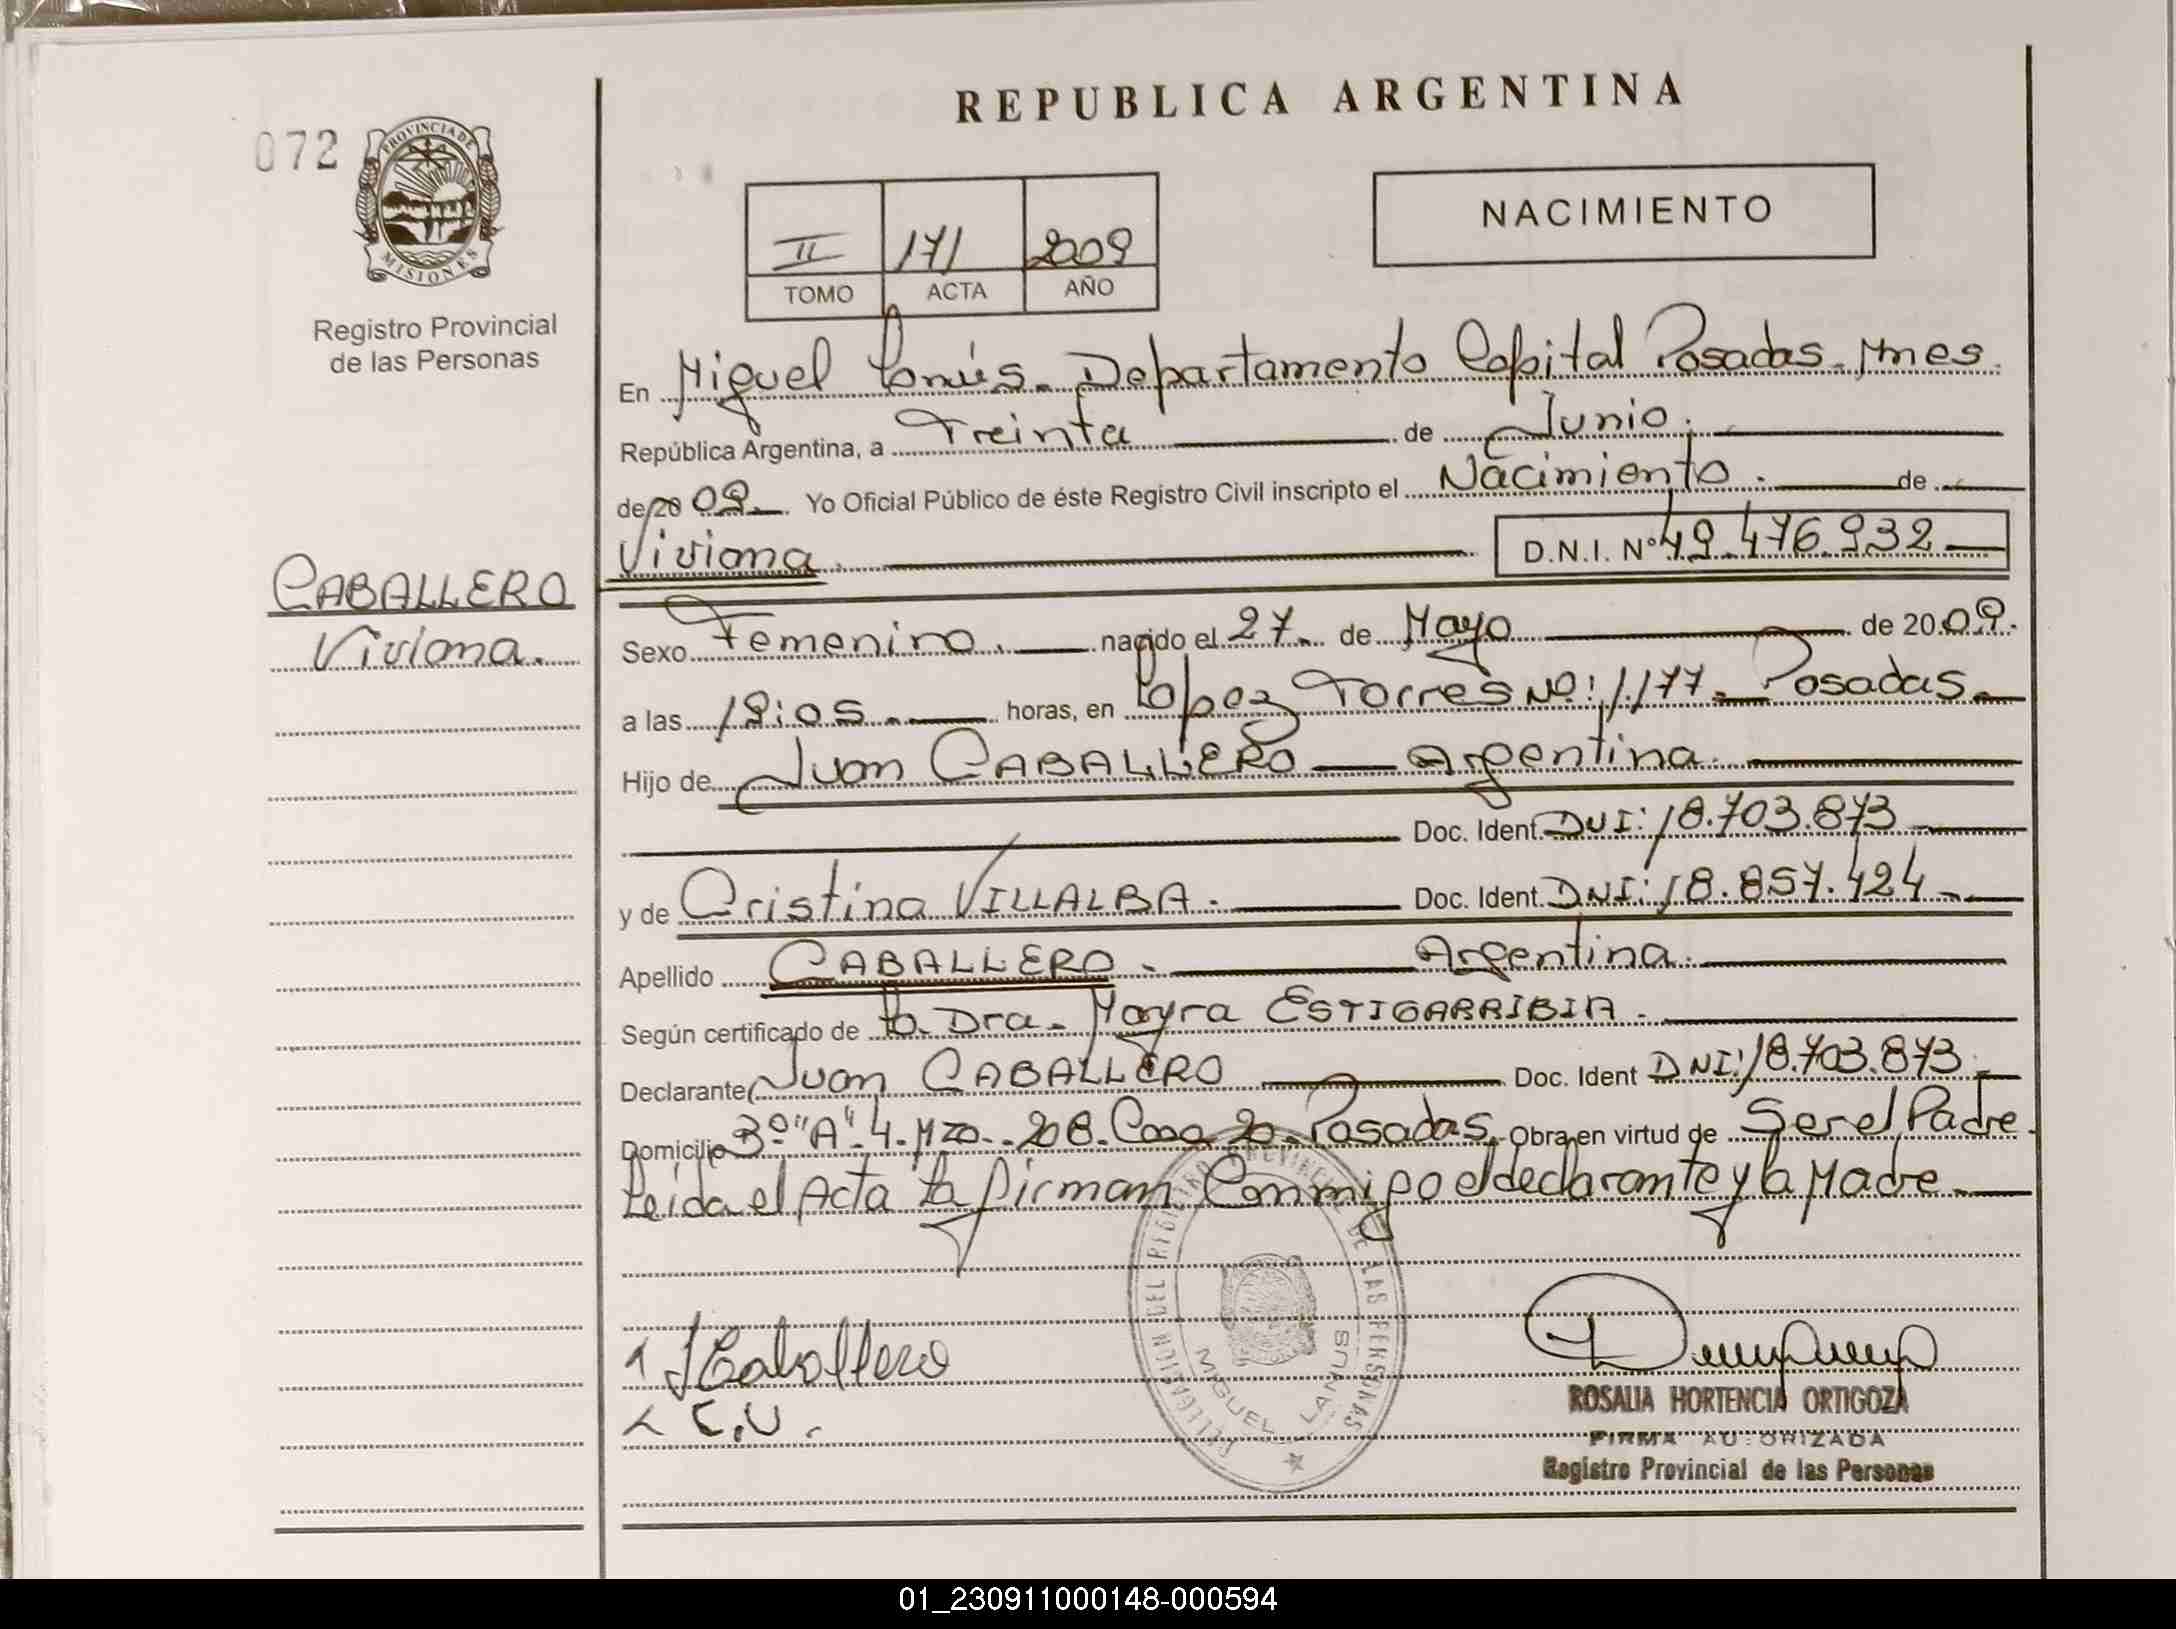 REPUBLICA ARGENTINA
072
PROVINCIA DE
MISIONES
Registro Provincial
de las Personas
NACIMIENTO
II 171 2009
TOMO ACTA AÑO
En Miguel Lanús. Departamento Capital Posadas. Mnes.
República Argentina, a Treinta de Junio.
de 20 09. Yo Oficial Público de éste Registro Civil inscripto el Nacimiento. de
Viviana. D.N.I. N° 49.476.932
CABALLERO
Viviana.
Sexo Femenino. nacido el 27. de Mayo de 20 09.
a las 19:05. horas, en López Torres Nº: 1.177. Posadas.
Hijo de Juan CABALLERO Argentina.
Doc. Ident. DNI: 18.703.873
y de Cristina VILLALBA. Doc. Ident. DNI: 18.857.424.
Apellido CABALLERO. Argentina.
Según certificado de la. Dra. Mayra ESTIGARRIBIA.
Declarante Juan CABALLERO Doc. Ident DNI: 18.703.873.
Domicilio 3º "A". 4. Mza. 208. Casa 20. Posadas. Obra en virtud de Ser el Padre.
Leída el Acta la firman Conmigo el declarante y la Madre.
DELEGACION DEL REGISTRO PROVINCIAL DE LAS PERSONAS
MIGUEL LANUS
J Caballero
C.V.
ROSALIA HORTENCIA ORTIGOZA
FIRMA AUTORIZADA
Registro Provincial de las Personas
01_230911000148-000594